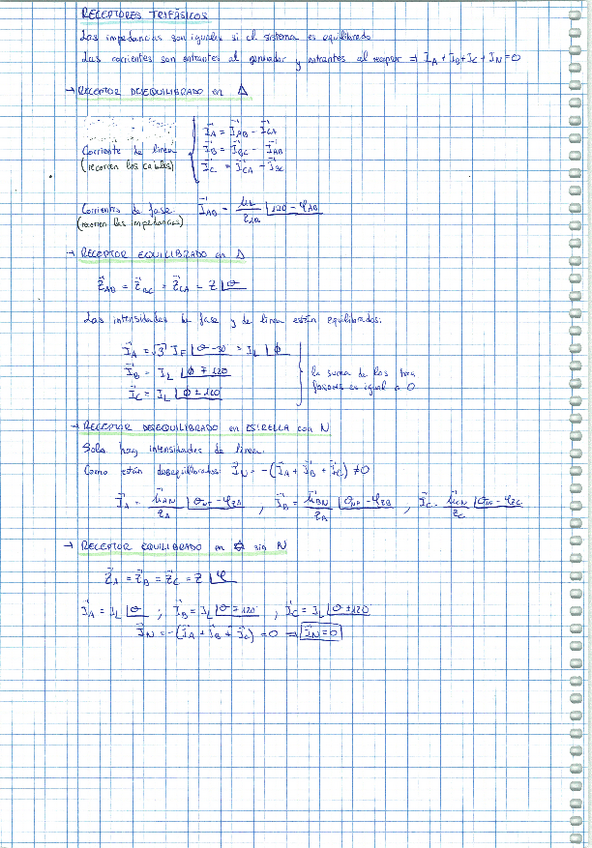 RECEPTORES TRIFÁSICOS
Las impedancias son iguales si el sistema es equilibrado
Las corrientes son entrantes al generador y entrantes al receptor ⇒ I_A + I_B + I_C + I_N = 0
→ RECEPTOR DESEQUILIBRADO en Δ
I_A = I_AB - I_CA
Corriente de línea I_B = I_BC - I_AB
(recorren los cables) I_C = I_CA - I_BC
Corrientes de fase I_AB = U_L / Z_AB ⌊120 - φ_AB
(recorren las impedancias)
→ RECEPTOR EQUILIBRADO en Δ
Z_AB = Z_BC = Z_CA = Z ⌊θ
Las intensidades de fase y de línea están equilibrados:
I_A = √3 I_F ⌊θ-30 = I_L ⌊ϕ
I_B = I_L ⌊ϕ ∓ 120 la suma de los tres
I_C = I_L ⌊ϕ ± 120 fasores es igual a 0
→ RECEPTOR DESEQUILIBRADO en ESTRELLA con N
Solo hay intensidades de línea.
Como están desequilibrados I_N = -(I_A + I_B + I_C) ≠ 0
I_A = U_AN / Z_A ⌊θ - φ_ZA , I_B = U_BN / Z_A ⌊θ - φ_ZB , I_C = U_CN / Z_C ⌊θ - φ_ZC
→ RECEPTOR EQUILIBRADO en sin N
Z_A = Z_B = Z_C = Z ⌊φ
I_A = I_L ⌊θ ; I_B = I_L ⌊θ ∓ 120° , I_C = I_L ⌊θ ± 120°
I_N = -(I_A + I_B + I_C) = 0 ⇒ I_N = 0